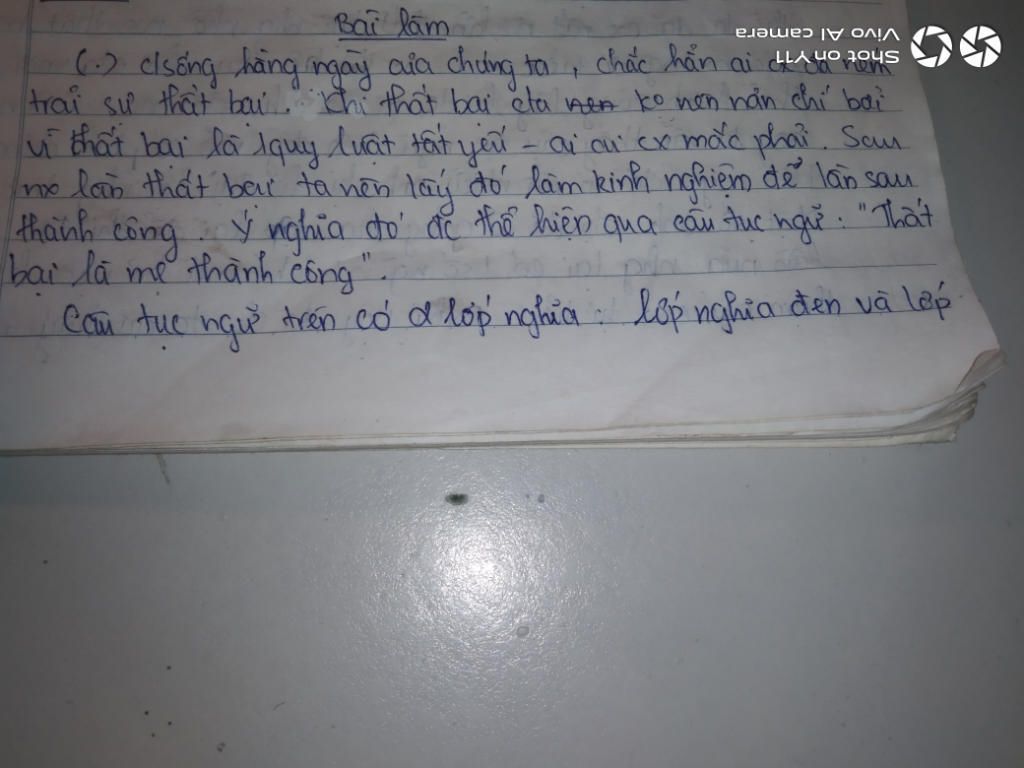 Bài làm
(.) c/sống hàng ngày của chúng ta, chắc hẳn ai cx đã nếm
trải sự thất bại. Khi thất bại cta ko nên nản chí bởi
vì thất bại là 1 quy luật tất yếu - ai ai cx mắc phải. Sau
mx lần thất bại ta nên lấy đó làm kinh nghiệm để lần sau
thành công. Ý nghĩa đó đc thể hiện qua câu tục ngữ: "Thất
bại là mẹ thành công".
Câu tục ngữ trên có 2 lớp nghĩa: lớp nghĩa đen và lớp
Shot on Y11
Vivo AI camera